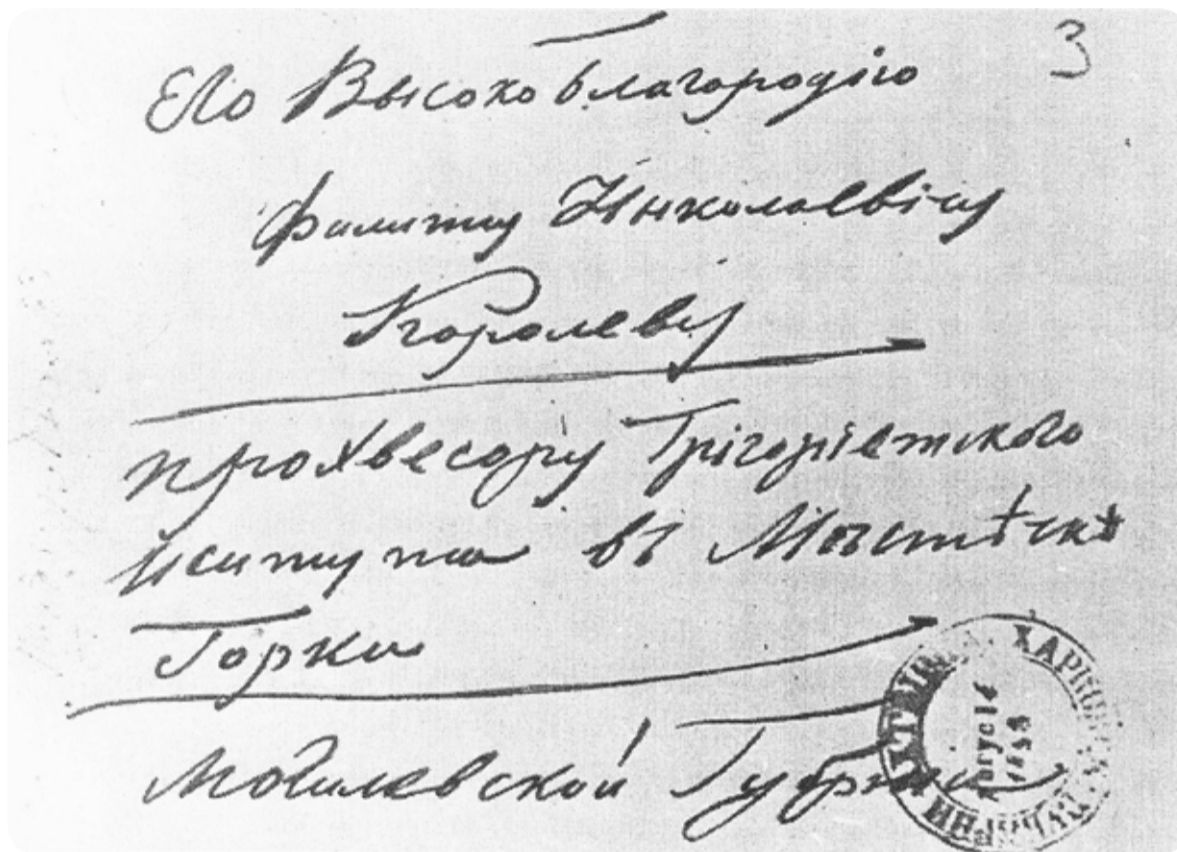 3
Его Высокоблагородію
Филипу Николаевічу
Королеву
прохвесору Грігоріетского
Иситута въ Мѣстѣчкѣ
Горки
Могилевской Губрніи
ХАРЬКОВ
Август